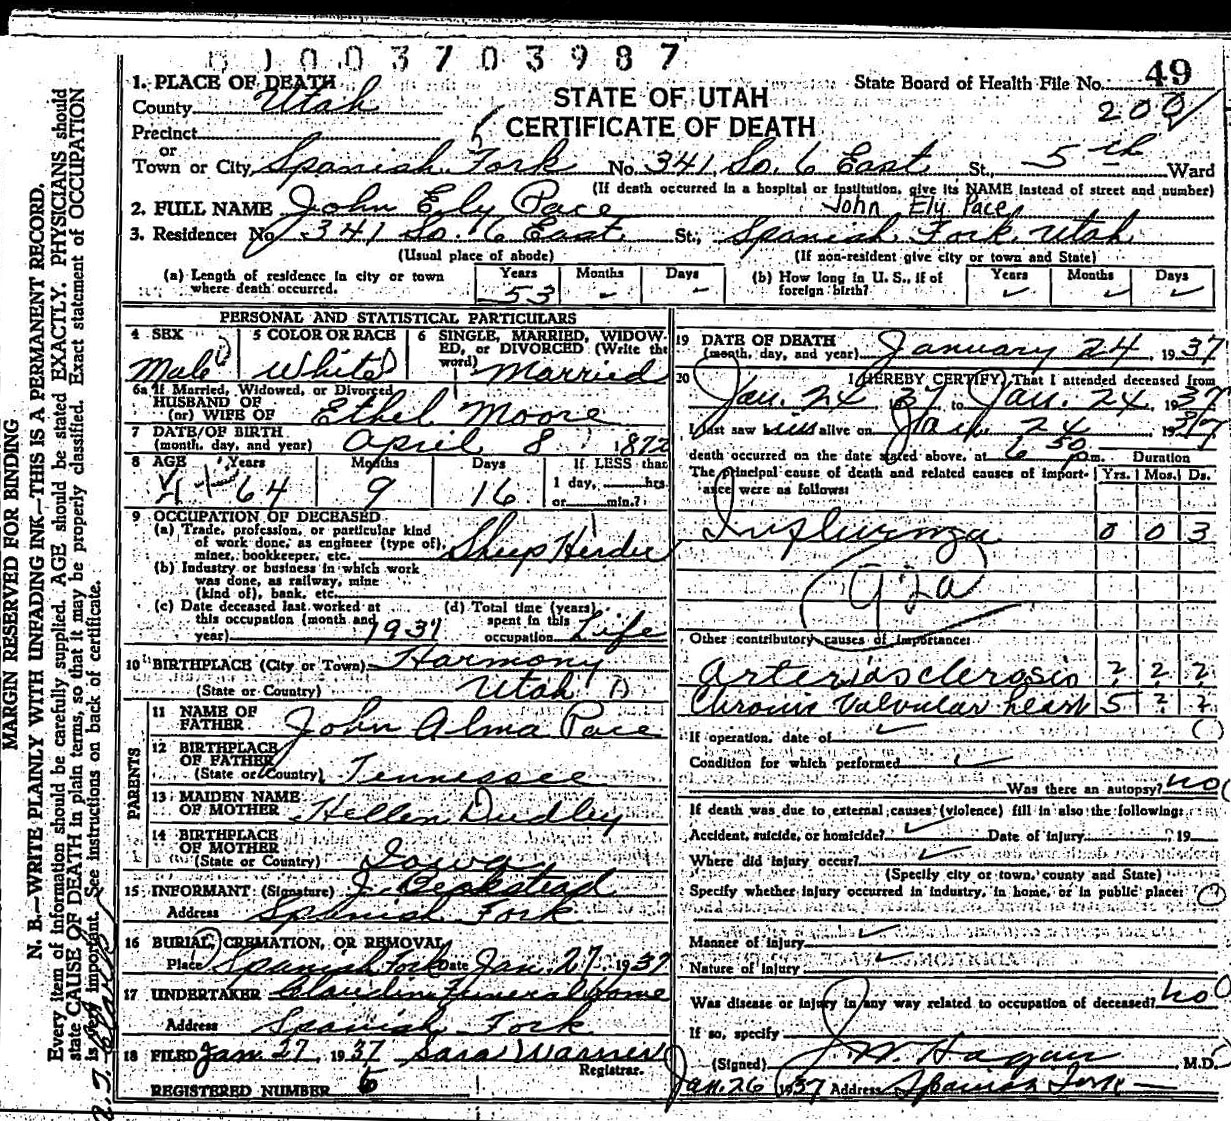 1003703987
1. PLACE OF DEATH
State Board of Health File No. 49
County Utah
STATE OF UTAH
200
Precinct
CERTIFICATE OF DEATH
or
Town or City Spanish Fork No. 341 So. 6 East St., 5th Ward
(If death occurred in a hospital or institution, give its NAME instead of street and number)
2. FULL NAME John Ely Pace John Ely Pace
3. Residence: No. 341 So. 6 East St., Spanish Fork, Utah
(Usual place of abode) (If non-resident give city or town and State)
(a) Length of residence in city or town where death occurred. Years 53 Months - Days -
(b) How long in U. S., if of foreign birth? Years ✓ Months ✓ Days ✓
PERSONAL AND STATISTICAL PARTICULARS
4 SEX Male
5 COLOR OR RACE White
6 SINGLE, MARRIED, WIDOWED, or DIVORCED (Write the word) Married
6a If Married, Widowed, or Divorced
HUSBAND OF
(or) WIFE OF Ethel Moore
7 DATE OF BIRTH
(month, day, and year) April 8 1872
8 AGE Years 64 Months 9 Days 16 If LESS than
1 day, hrs.
or min.?
9 OCCUPATION OF DECEASED
(a) Trade, profession, or particular kind
of work done, as engineer (type of),
miner, bookkeeper, etc. Sheep Herder
(b) Industry or business in which work
was done, as railway, mine
(kind of), bank, etc.
(c) Date deceased last worked at
this occupation (month and
year) 1937
(d) Total time (years)
spent in this
occupation Life
10 BIRTHPLACE (City or Town) Harmony
(State or Country) Utah
PARENTS
11 NAME OF
FATHER John Alma Pace
12 BIRTHPLACE
OF FATHER
(State or Country) Tennessee
13 MAIDEN NAME
OF MOTHER Hellen Dudley
14 BIRTHPLACE
OF MOTHER
(State or Country) Iowa
15 INFORMANT (Signature) J. Beckstead
Address Spanish Fork
16 BURIAL, CREMATION, OR REMOVAL
Place Spanish Fork Date Jan. 27, 1937
17 UNDERTAKER Claudin Funeral Home
Address Spanish Fork
18 FILED Jan. 27, 1937 Sara Warner
Registrar.
REGISTERED NUMBER 6
19 DATE OF DEATH
(month, day, and year) January 24, 1937
20 I HEREBY CERTIFY, That I attended deceased from
Jan. 24 37 to Jan. 24, 1937
I last saw him alive on Jan. 24 1937
death occurred on the date stated above, at 6 50 p.m. Duration
The principal cause of death and related causes of importance were as follows: Yrs. Mos. Ds.
Influenza 0 0 3
92a
Other contributory causes of importance:
Arteriosclerosis ? ? ?
Chronic Valvular heart 5 ? ?
If operation, date of ✓
Condition for which performed ✓
Was there an autopsy? no
If death was due to external causes (violence) fill in also the following:
Accident, suicide, or homicide? ✓ Date of injury , 19
Where did injury occur? ✓
(Specify city or town, county and State)
Specify whether injury occurred in industry, in home, or in public place:
Manner of injury ✓
Nature of injury ✓
Was disease or injury in any way related to occupation of deceased? no
If so, specify
(Signed) J. W. Hagan M.D.
Jan. 26 1937 Address Spanish Fork
MARGIN RESERVED FOR BINDING
N. B.—WRITE PLAINLY WITH UNFADING INK—THIS IS A PERMANENT RECORD.
Every item of information should be carefully supplied. AGE should be stated EXACTLY. PHYSICIANS should
state CAUSE OF DEATH in plain terms, so that it may be properly classified. Exact statement of OCCUPATION
is very important. See instructions on back of certificate.